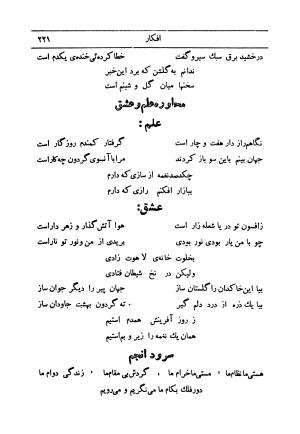 افکار ۲۲۱
درخشید برق سبك سیر و گفت خطا کرده‌ئی خنده‌ی یکدم است
ندانم به گلشن که برد این خبر
سخنها میان گل و شبنم است
محاوره علم و عشق
علم :
نگاهم راز دار هفت و چار است گرفتار کمندم روزگار است
جهان بینم باین سو باز کردند مرا با آنسوی گردون چه کار است
چکد صد نغمه از سازی که دارم
ببازار افکنم رازی که دارم
عشق:
ز افسون تو دریا شعله زار است هوا آتش گذار و زهر دار است
چو با من یار بودی نور بودی بریدی از من و نور تو نار است
بخلوت خانه‌ی لاهوت زادی
ولیکن در نخ شیطان فتادی
بیا این خاکدان را گلستان ساز جهان پیر را دیگر جوان ساز
بیا یك ذره از درد دلم گیر ته گردون بهشت جاودان ساز
ز روز آفرینش همدم استیم
همان یك نغمه را زیر و بم استیم
سرود انجم
هستی ما نظام ما مستی ما خرام ما گردش بی مقام ما زندگی دوام ما
دور فلك بکام ما می‌نگریم و می‌رویم